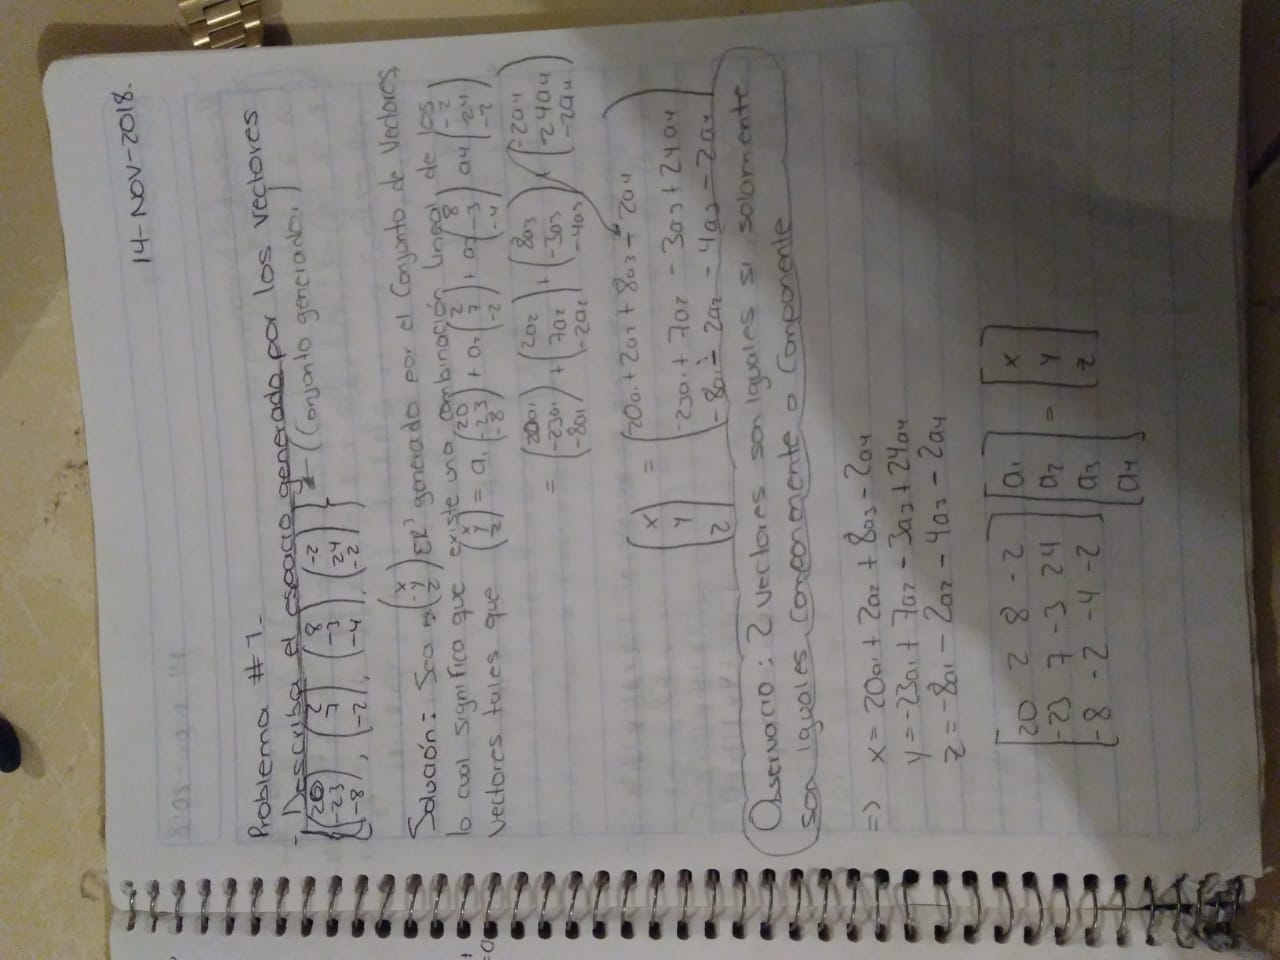 14-NOV-2018.
Problema #1_
- Describa el espacio generado por los vectores
{(20 -23 -8), (2 7 -2), (8 -3 -4), (-2 24 -2)} (Conjunto generador)
Solución: Sea (x y z) ∈ R³ generado por el Conjunto de Vectores,
lo cual significa que existe una combinación lineal de los
vectores tales que (x y z) = a₁ (20 -23 -8) + a₂ (2 7 -2) + a₃ (8 -3 -4) a₄ (-2 24 -2)
= (20a₁ -23a₁ -8a₁) + (2a₂ 7a₂ -2a₂) + (8a₃ -3a₃ -4a₃) + (-2a₄ -24a₄ -2a₄)
(x y z) = (20a₁ + 2a₂ + 8a₃ - 2a₄
-23a₁ + 7a₂ - 3a₃ + 24a₄
-8a₁ - 2a₂ - 4a₃ - 2a₄)
Observacio: 2 vectores son iguales si solamente
son iguales componente a componente
=> x = 20a₁ + 2a₂ + 8a₃ - 2a₄
y = -23a₁ + 7a₂ - 3a₃ + 24a₄
z = -8a₁ - 2a₂ - 4a₃ - 2a₄
[20 2 8 -2] [a₁] [x]
[-23 7 -3 24] [a₂] = [y]
[-8 -2 -4 -2] [a₃] [z]
[a₄]